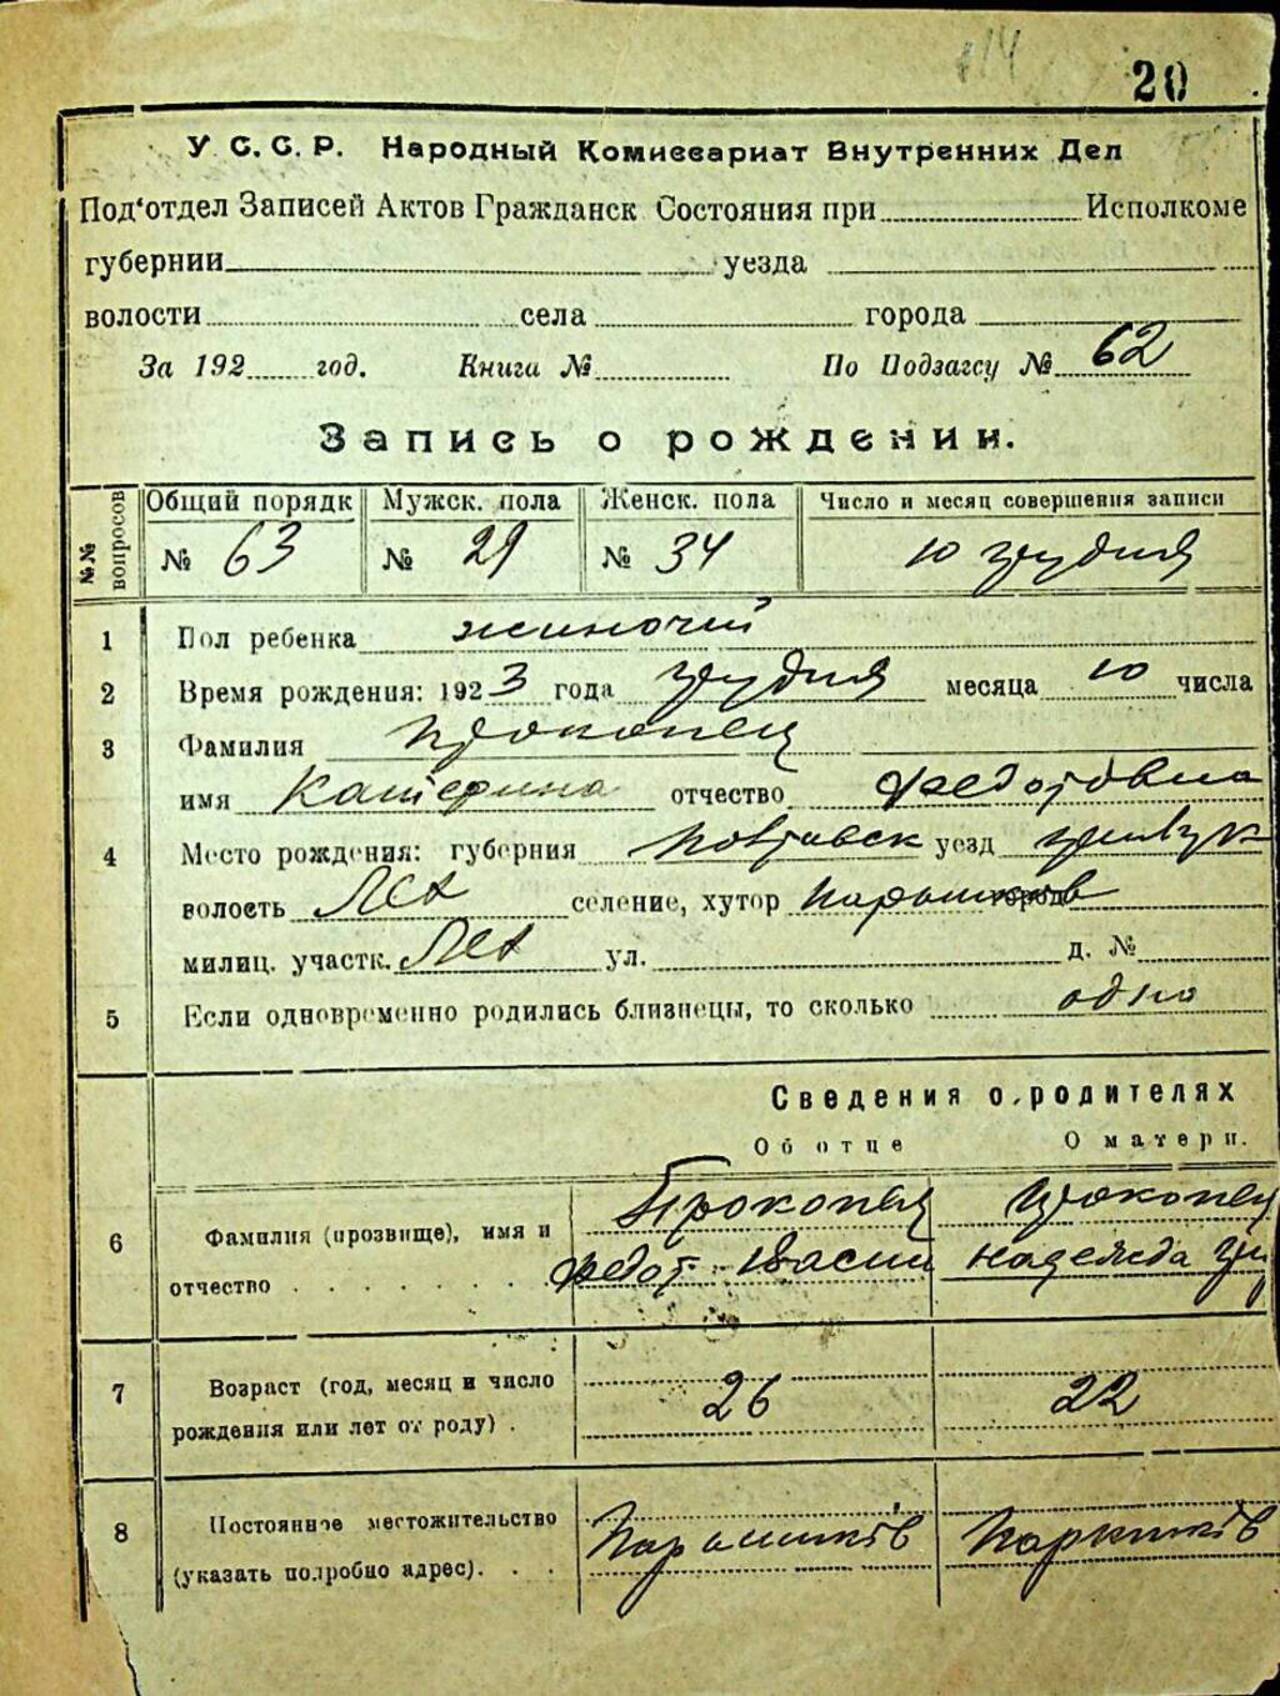 20
У С. С. Р. Народный Комиссариат Внутренних Дел
Под'отдел Записей Актов Гражданск Состояния при Исполкоме
губернии уезда
волости села города
За 192 год. Книга № По Подзагсу № 62
Запись о рождении.
№№ вопросов Общий порядк Мужск. пола Женск. пола Число и месяц совершения записи
№ 63 № 29 № 34 10 грудня
1 Пол ребенка жиночий
2 Время рождения: 1923 года грудня месяца 10 числа
3 Фамилия Прокопец
имя Катерина отчество Федотовна
4 Место рождения: губерния Полтавск уезд
волость селение, хутор город
милиц. участк. ул. д. №
5 Если одновременно родились близнецы, то сколько одно
Сведения о родителях
Об отце О матери.
6 Фамилия (прозвище), имя и Прокопец Прокопец
отчество Федот Васил Надежда
7 Возраст (год, месяц и число 26 22
рождения или лет от роду) .
8 Постоянное местожительство
(указать подробно адрес).